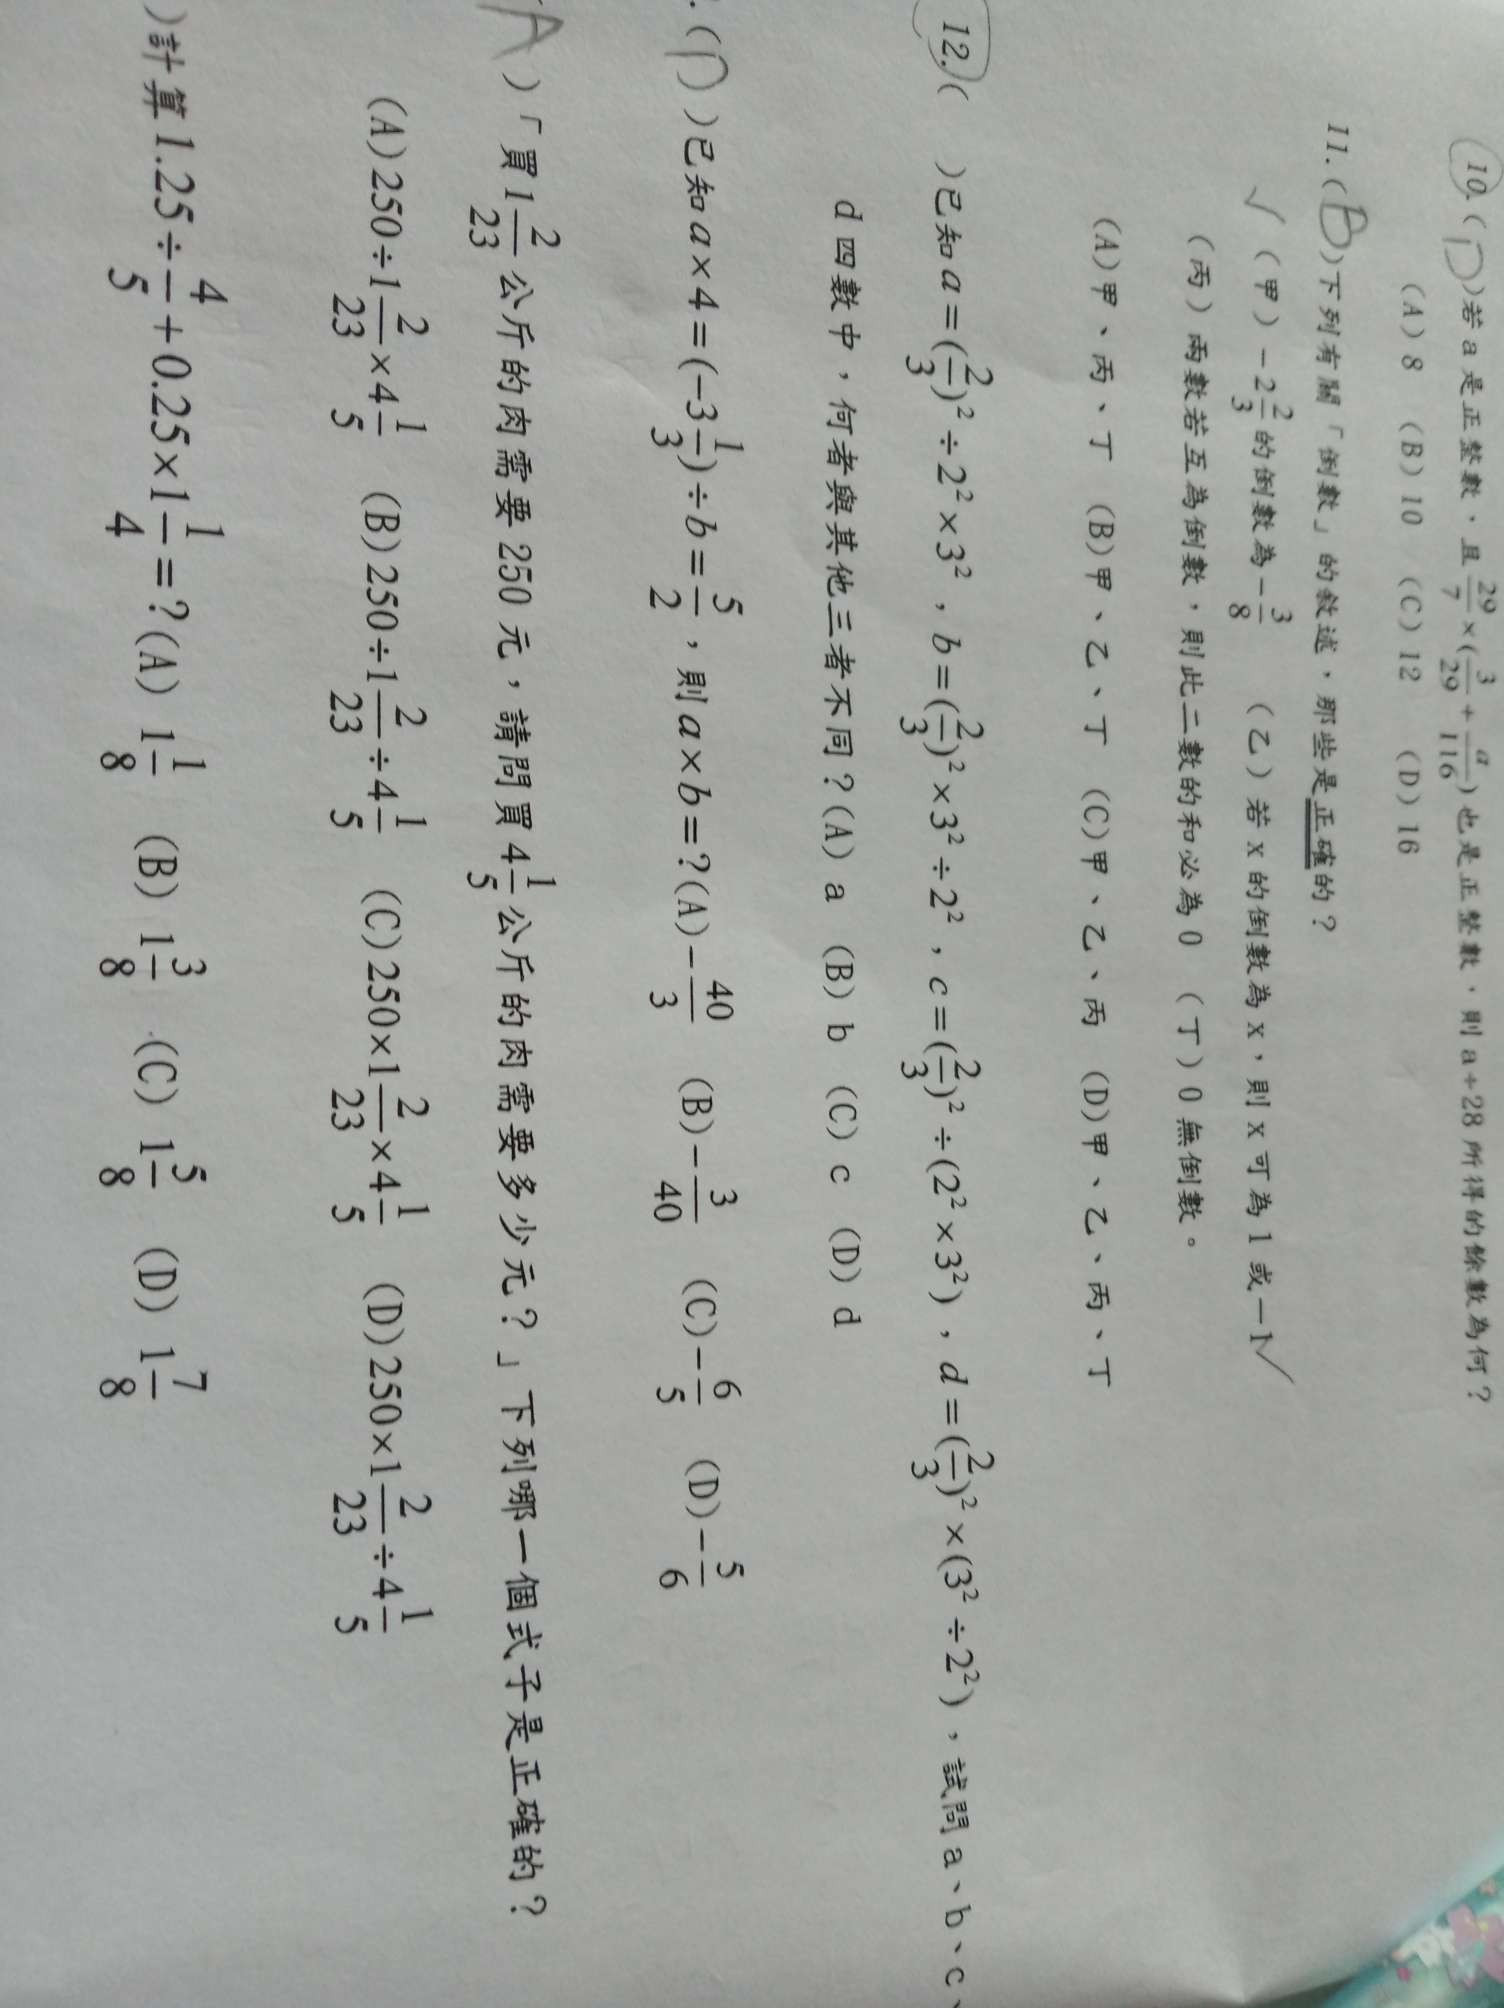 10.(D)若 a 是正整數，且 29/7×(3/29+a/116)也是正整數，則 a÷28 所得的餘數為何？
(A) 8 (B) 10 (C) 12 (D) 16
11.(B)下列有關「倒數」的敘述，那些是正確的？
✓(甲) −2 2/3 的倒數為 −3/8 (乙) 若 x 的倒數為 x，則 x 可為 1 或 −1✓
(丙) 兩數若互為倒數，則此二數的和必為 0 (丁) 0 無倒數。
(A)甲、丙、丁 (B)甲、乙、丁 (C)甲、乙、丙 (D)甲、乙、丙、丁
12.( )已知 a=(2/3)²÷2²×3²，b=(2/3)²×3²÷2²，c=(2/3)²÷(2²×3²)，d=(2/3)²×(3²÷2²)，試問 a、b、c、
d 四數中，何者與其他三者不同？(A) a (B) b (C) c (D) d
.(D)已知 a×4=(−3 1/3)÷b=5/2，則 a×b=？(A)−40/3 (B)−3/40 (C)−6/5 (D)−5/6
A)「買 1 2/23 公斤的肉需要 250 元，請問買 4 1/5 公斤的肉需要多少元？」下列哪一個式子是正確的？
(A)250÷1 2/23×4 1/5 (B)250÷1 2/23÷4 1/5 (C)250×1 2/23×4 1/5 (D)250×1 2/23÷4 1/5
)計算 1.25÷4/5+0.25×1 1/4=？(A) 1 1/8 (B) 1 3/8 (C) 1 5/8 (D) 1 7/8